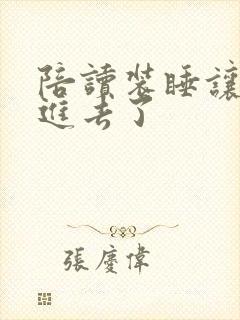 陪讀裝睡讓
進去了
張慶偉